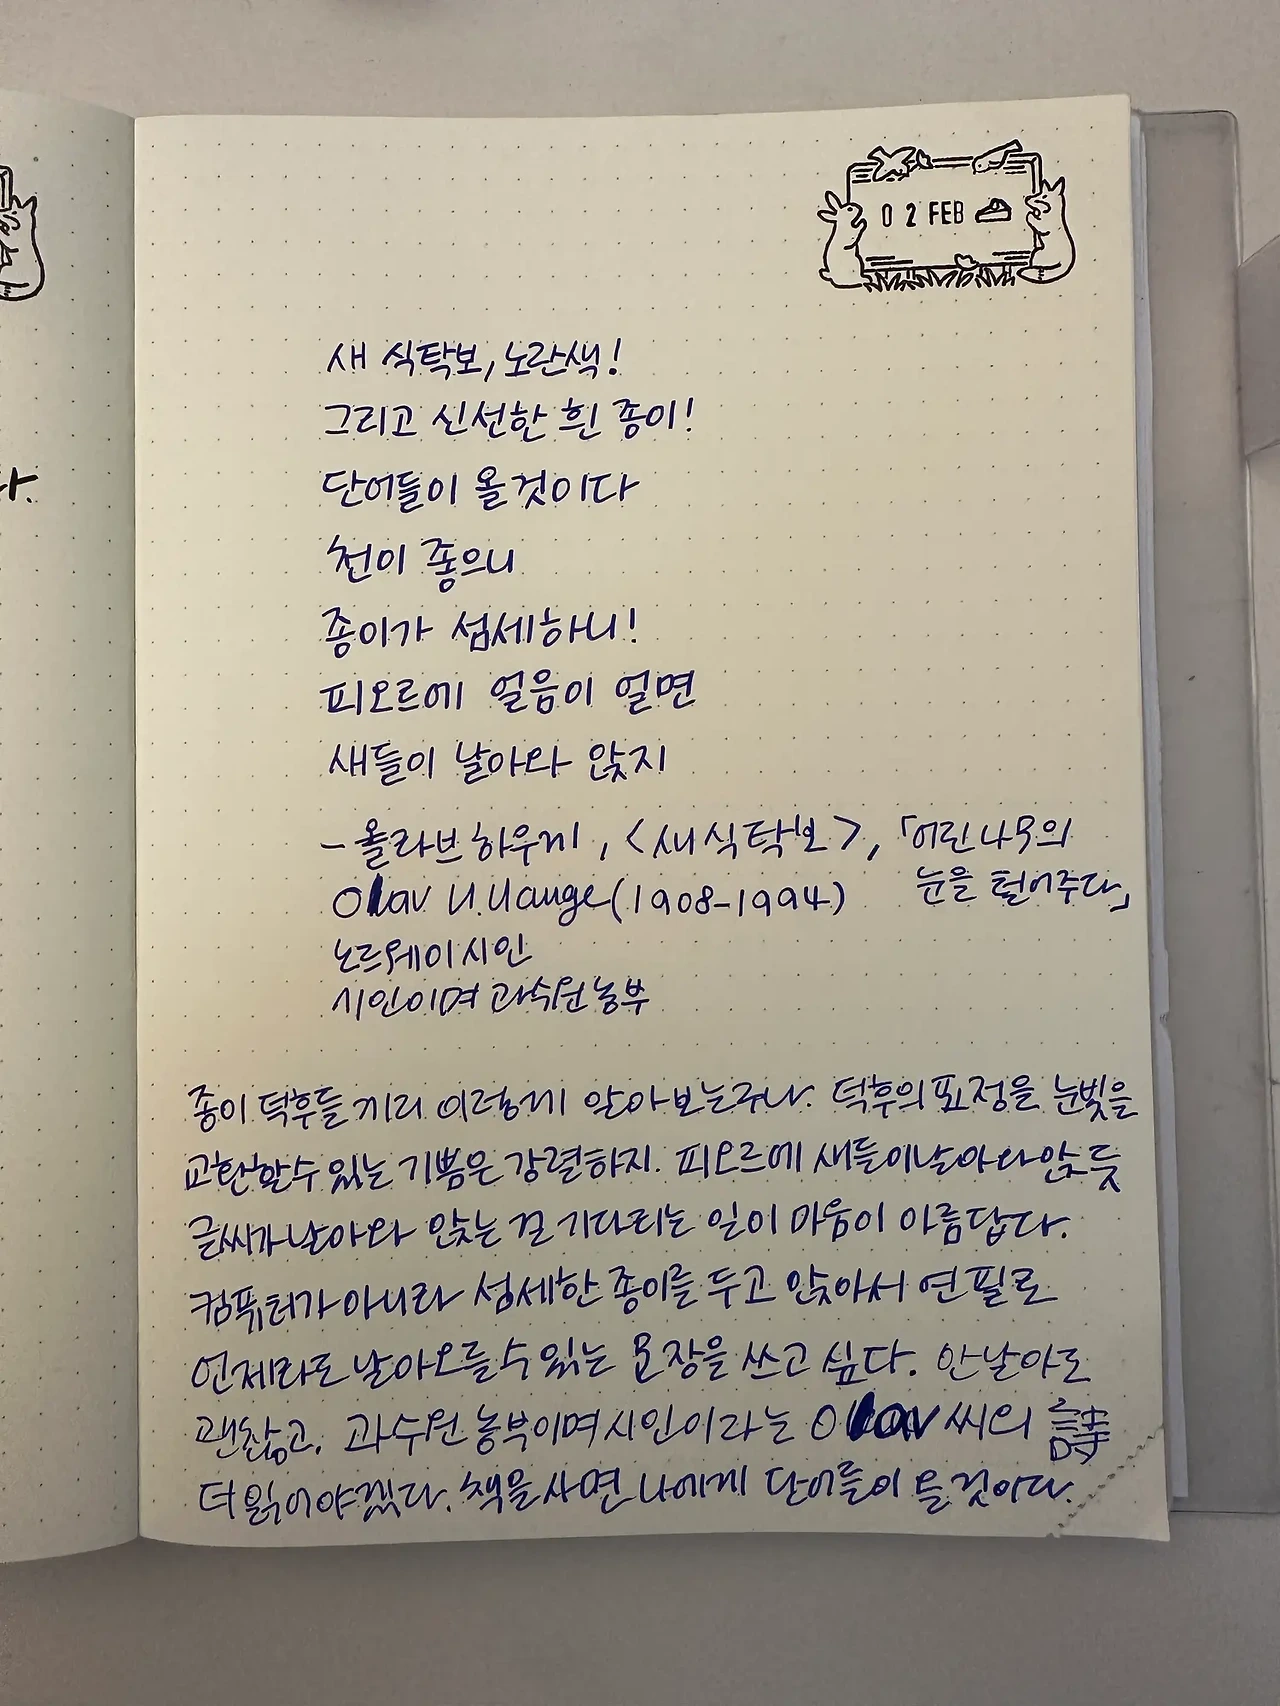 0 2 FEB
다.
새 식탁보, 노란색!
그리고 신선한 흰 종이!
단어들이 올것이다
천이 좋으니
종이가 섬세하니!
피오르에 얼음이 얼면
새들이 날아와 앉지
- 올라브 하우게, <새 식탁보>, 「어린 나무의
눈을 털어주다」
Olav H. Hauge (1908-1994)
노르웨이 시인
시인이며 과수원 농부
종이 덕후들끼리 이렇게 알아보는구나. 덕후의 표정을 눈빛을
교환할 수 있는 기쁨은 강렬하지. 피오르에 새들이 날아와 앉듯
글씨가 날아와 앉는 걸 기다리는 일이 마음이 아름답다.
컴퓨터가 아니라 섬세한 종이를 두고 앉아서 연필로
언제라도 날아오를 수 있는 문장을 쓰고 싶다. 안 날아도
괜찮고. 과수원 농부이며 시인이라는 Olav 씨의 詩
더 읽어야겠다. 책을 사면 나에게 단어들이 올 것이다.